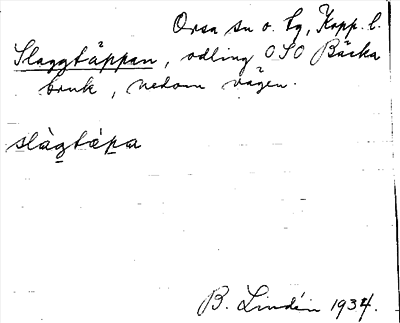 Orsa sn o. tg, Kopp. l.
Slaggtäppan, odling OSO Bäcka
bruk, nedom vägen.
slàgtápa
B. Lindén 1934.